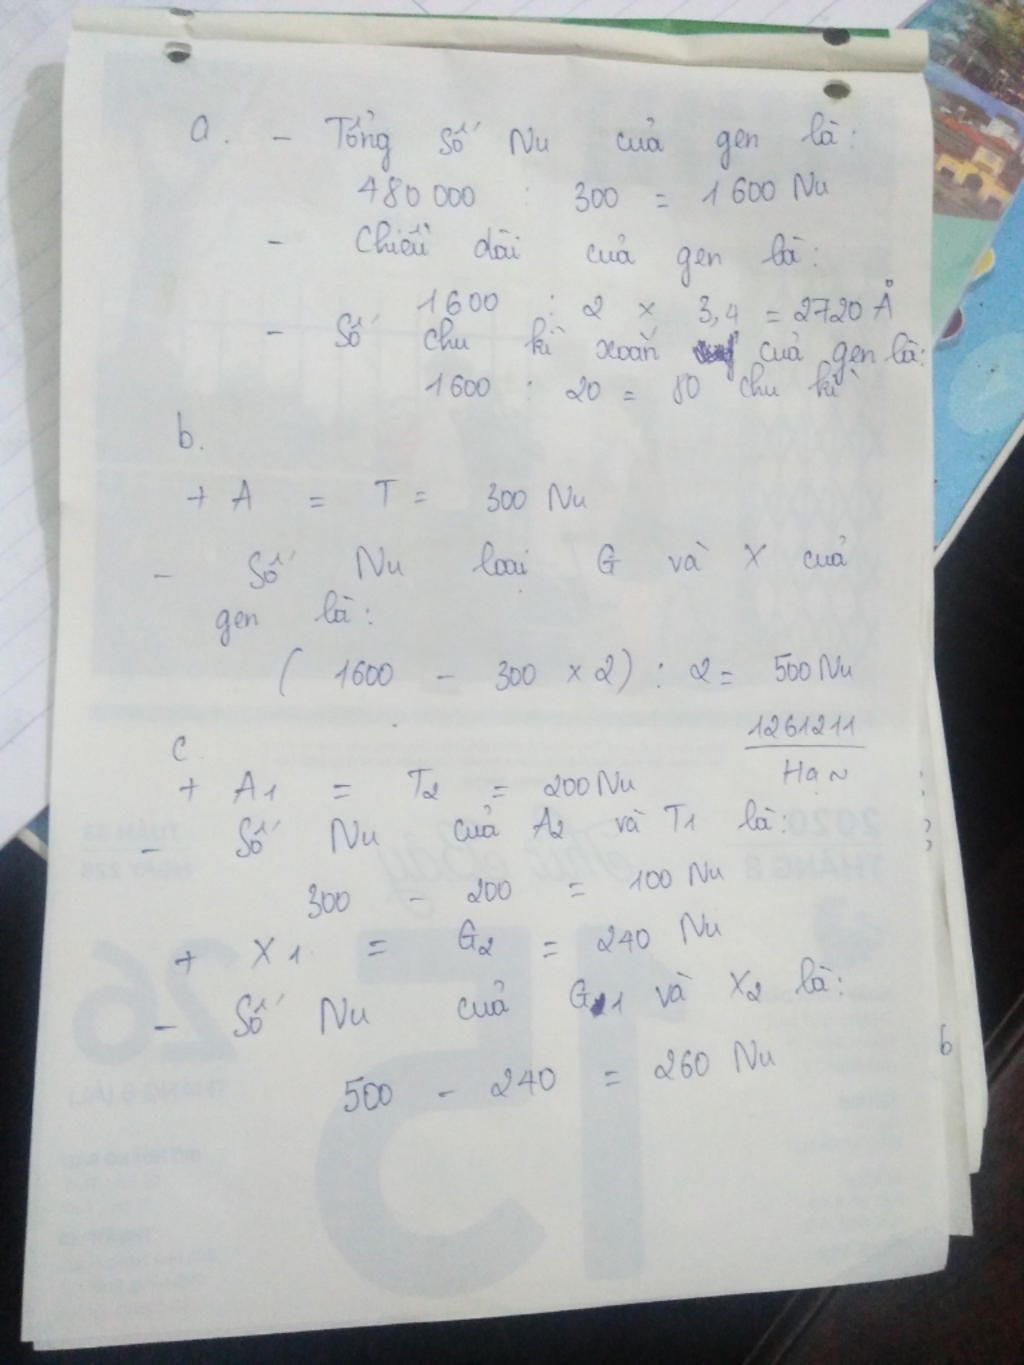 a. - Tổng số Nu của gen là:
480 000 : 300 = 1 600 Nu
- Chiều dài của gen là:
1600 : 2 x 3,4 = 2720 Å
- Số chu kì xoắn của gen là:
1600 : 20 = 80 chu kì
b.
+ A = T = 300 Nu
- Số Nu loại G và X của
gen là:
( 1600 - 300 x 2) : 2 = 500 Nu
1261211
Hạn
c.
+ A1 = T2 = 200 Nu
- Số Nu của A2 và T1 là:
300 - 200 = 100 Nu
+ X1 = G2 = 240 Nu
- Số Nu của G1 và X2 là:
500 - 240 = 260 Nu
6
2020
THÁNG 8
Thứ Bảy
TUẦN 33
NGÀY 228
15
26
THÁNG 6 (ÂL)